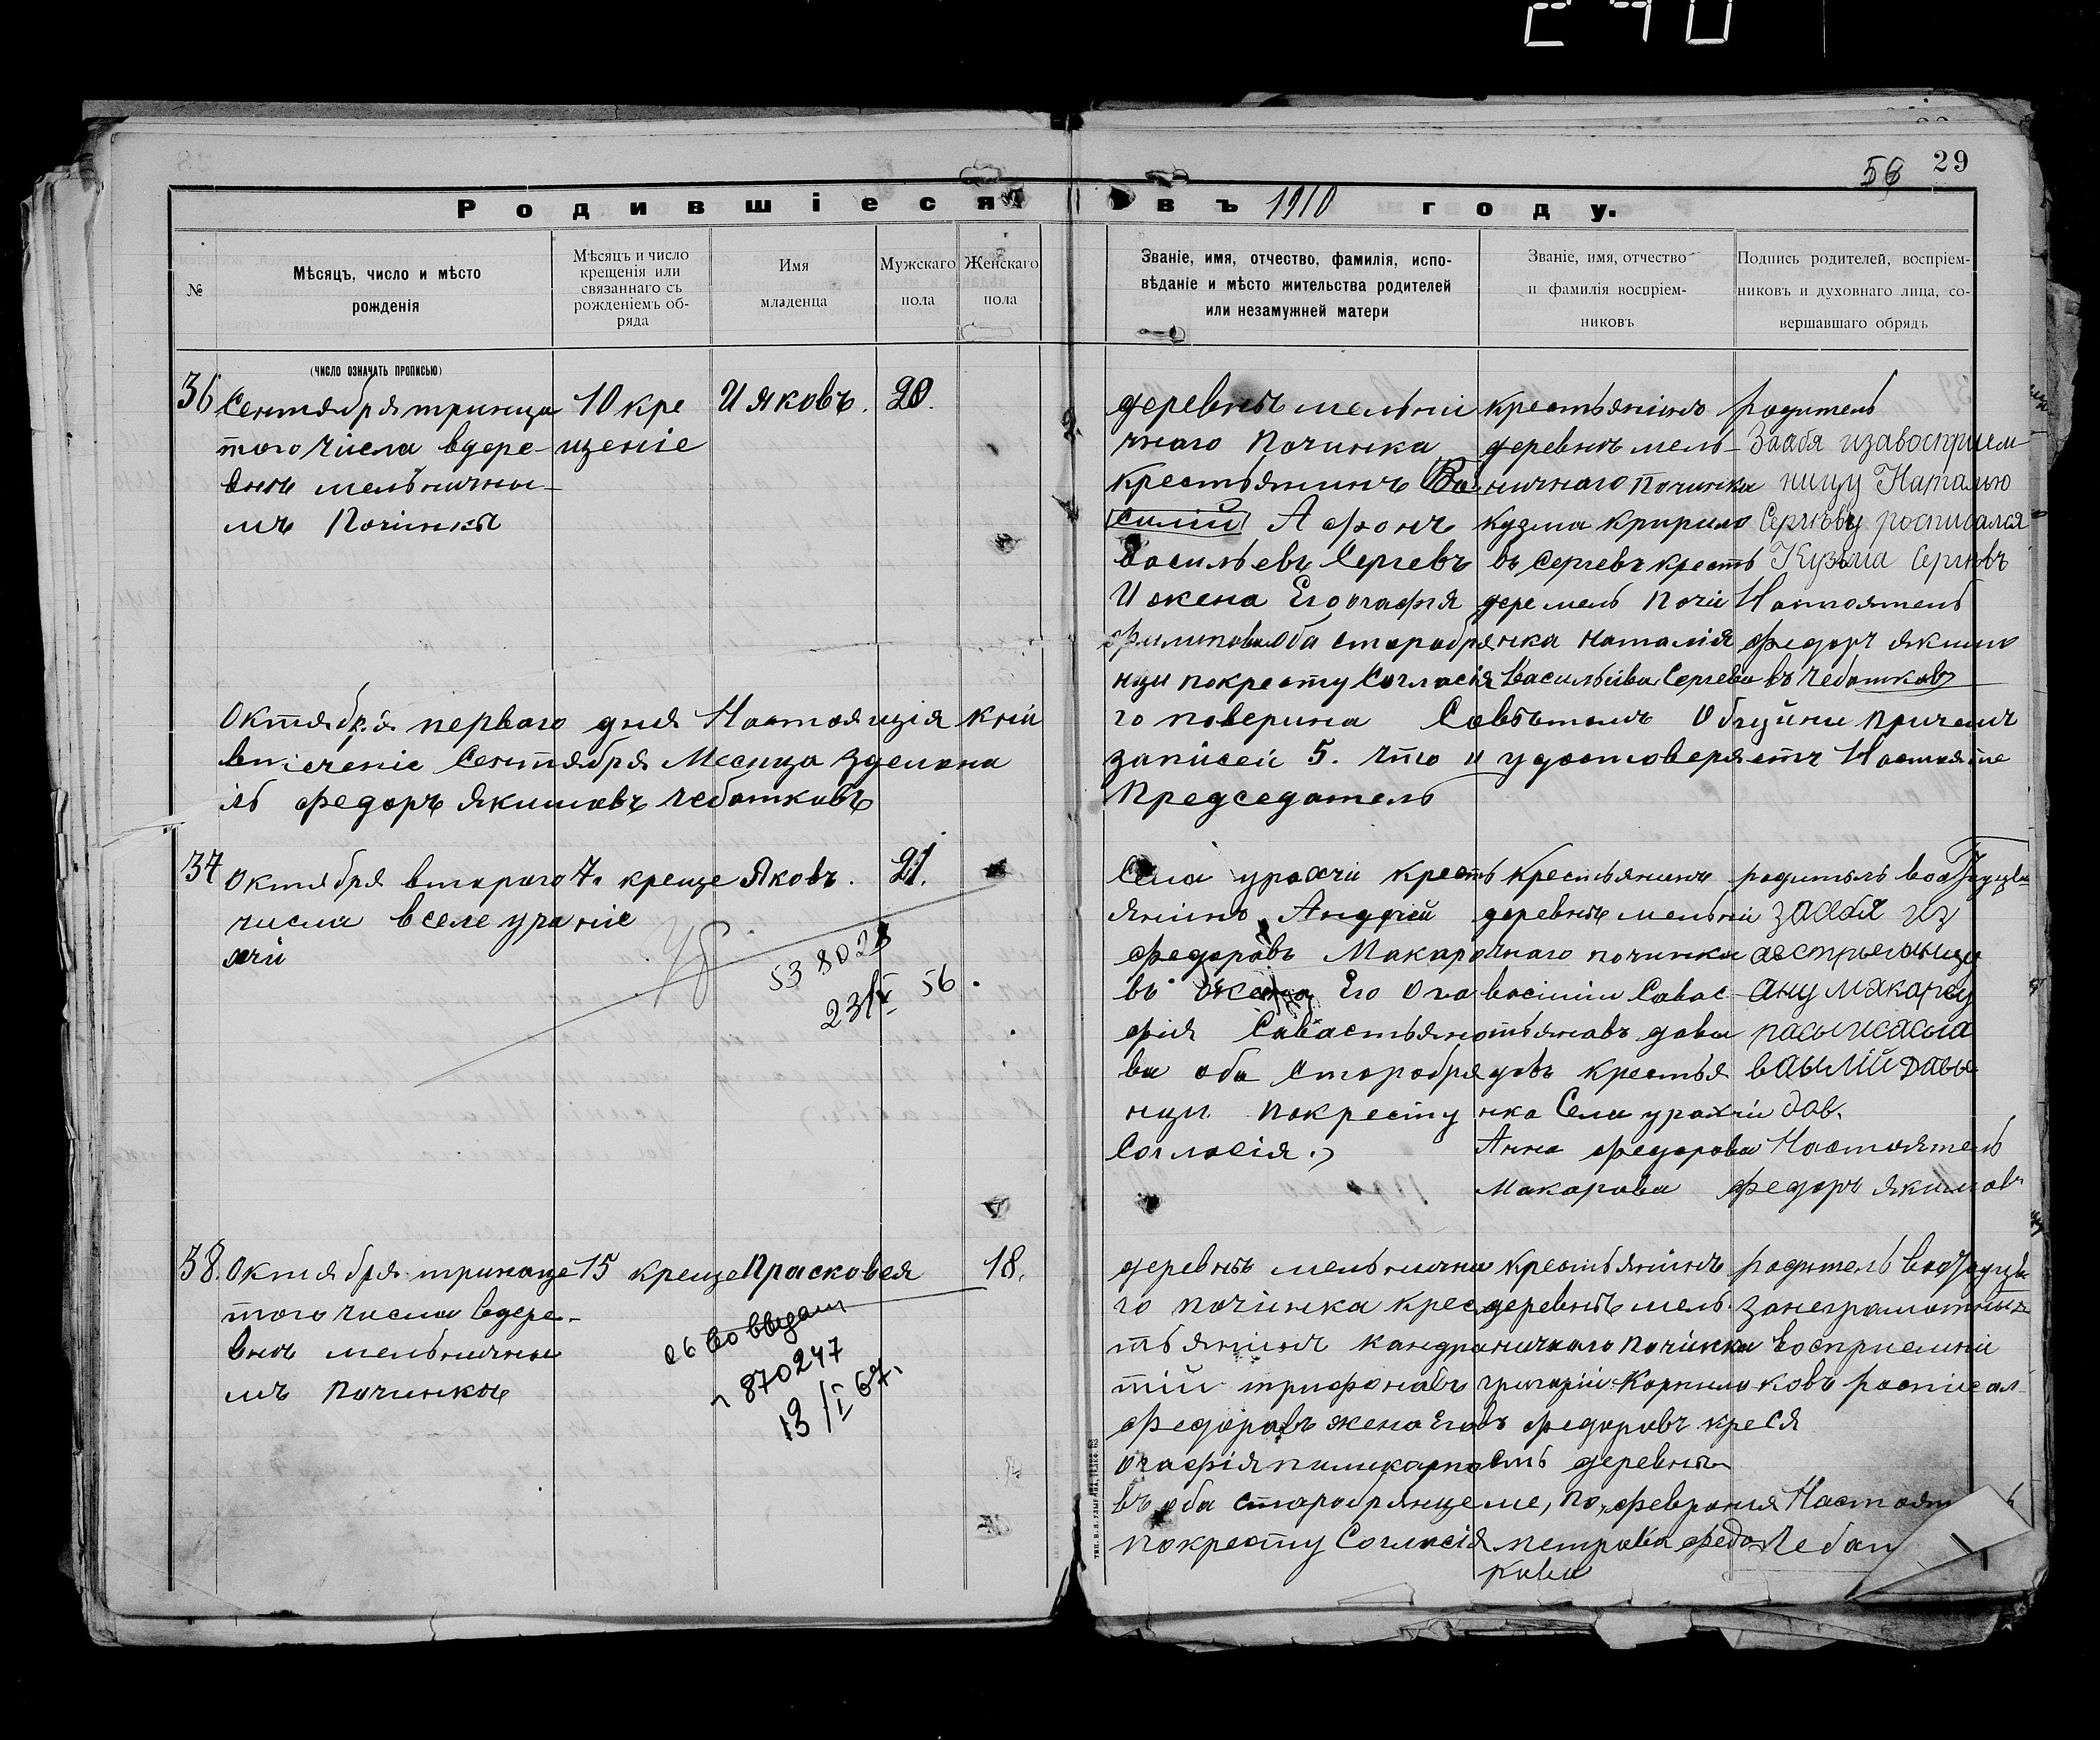 290
56 29
Родившіеся въ 1910 году.
№
Мѣсяцъ, число и мѣсто
рожденія
Мѣсяцъ и число
крещенія или
связаннаго съ
рожденіемъ об-
ряда
Имя
младенца
Мужскаго
пола
Женскаго
пола
Званіе, имя, отчество, фамилія, испо-
вѣданіе и мѣсто жительства родителей
или незамужней матери
Званіе, имя, отчество
и фамилія воспріем-
никовъ
Подпись родителей, воспріем-
никовъ и духовнаго лица, со-
вершавшаго обрядъ
(число означать прописью)
36
Сентября тринца
того числа вдере-
внѣ мельнични-
мъ Починкѣ
10 кре
щеніе
Ияковъ.
20.
деревнѣ мельни
чнаго Починка
Крестьянинъ Ва
силий Афонъ
Васильевъ Сергевъ
И жена Его огафия
филипова оба старобря
нци покресту Согласія
крестьянинъ
деревнѣ мель-
ничнаго починка
кузма кирило
въ Сергевъ кресть
дере мель Почи
нка наталия
Васильива Сергева
родитель
Заабя изавосприем
ницу Наталью
Сергѣву росписался
Кузьма Сергѣвъ
Настоятель
федоръ якимо
въ Чебатковъ
Октября перваго дня Настоящія кни
го поверина Совѣтомъ Общини причемъ
втечение Сентября Месица зделана
записей 5. что и удостоверяетъ Настояте
ль федоръ якимовъ чебатковъ
Председатель
37
Октября втораго
числа вселе ура
хчи
7. креще
ніе
Яковъ.
21.
53 8023
23/V 56.
Села урахчи кресть
янинъ Андрей
федоровъ Макаро
въ жена Его Ога
фия Савастьяно
ва оба Старобря
нци покресту
Согласія.
Крестьянинъ
деревнѣ мельни
чнаго починка
васили Савас-
тьяновъ дави
довъ крестья
нка Села урахчи
Анна федорова
Макарова
родитель
заабя из
ану макарву
василий давы
дов.
Настоятель
федоръ якимовъ
38.
Октября тринаце
того числа вдере-
внѣ мельничны
мъ починкѣ
15 креще
Прасковея
18.
870247
13/I 67.
деревнѣ мельнични
го починка крес
тьянинъ кандра
тий трифоновъ
федоровъ жена Его
огафія пиликарпо
въ оба старобрянце
покресту Согласія
крестьянинъ
деревнѣ мель
ничнаго починка
григорій Корнило
въ федоровъ кре
сть деревнѣ
ме, по, феврония
петрова федо
рова
родитель
занеграмотных
Восприемни
ковъ росписал
ся
Настоят
Чебат